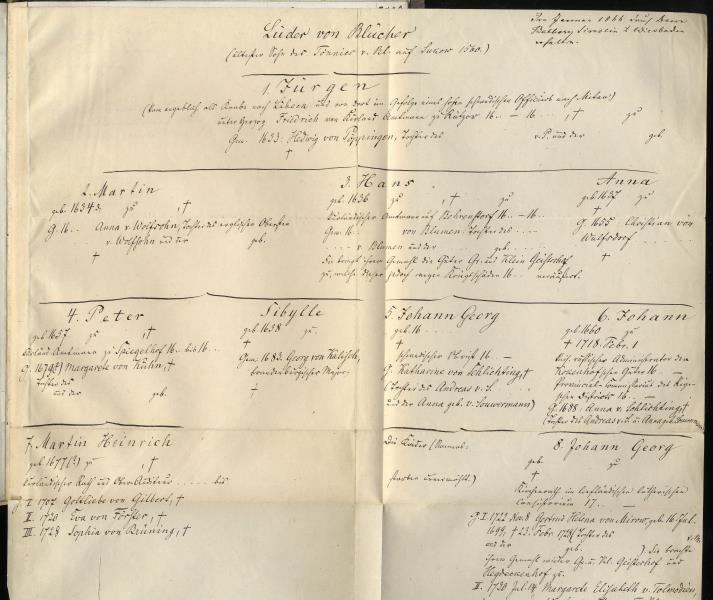 Im Januar 1866 durch Herrn
erhalten.
Lüder von Blücher
(ältester Sohn des Tönnies v. Bl. auf Sukow 1560.)
1. Jürgen
(Kam angeblich als Knabe nach Lübeck und von dort im Gefolge eines hohen schwedischen Officiers nach Mitau.)
unter Herzog Friedrich von Kurland Amtmann zu 16.. — 16..., † zu
Gem. 1633: Hedwig von Töppingen, Tochter des v. P. und der geb.
†
2. Martin
geb. 1634 zu , †
G. 16.. Anna v. Wolfsohn, Tochter des englischen Obersten
v. Wolfsohn und der geb.
†
3. Hans
geb. 1636 zu , † zu
Kurländischer Amtmann auf 16.. — 16..
Gem. 16.. von Blumen, Tochter des
v. Blumen und der geb.
die bringt ihrem Gemahl die Güter Gr. und Klein Geistershof
zu, welche dieser jedoch wegen Kriegsschäden 16.. veräussert.
Anna
geb. 1637 zu
G. 1655 Christian von
Walfsdorf
†
4. Peter
geb. 1657 zu , †
Amtmann zu Spiegelhof 16.. bis 16...
G. 1679(?) Margarete von Kühn, †
Tochter des
und der geb.
Sibylle
geb. 1658 zu
Gem. 1683. Georg von Kalisch,
brandenburgischer Major.
†
5. Johann Georg
geb. 16
†
schwedischer 16.. —
G. Katharine von Schlichting, †
(Tochter des Andreas v. S.
und der Anna geb. v. Souwermann)
6. Johann
geb. 1660 zu
† 1718. Febr. 1
russischer Administrator der
Güter 16.. —
Provincial-
Districts 16.. —
G. 1688: Anna v. Schlichting, †
(Tochter des Andreas v. S. u. Anna geb.
7. Martin Heinrich
geb. 1677(?) zu , †
Kurländischer Rath und Ober-Auditeur bis
G. I. 1707 Gottliebe von Gilbert, †
II. 1720 Eva von Förster, †
III. 1728 Sophia von Brüning, †
Die Kinder
starben unvermählt.)
8. Johann Georg
geb. zu
Kirchenrath im livländischen lutherischen
Consistorium 17.. —
G. I. 1722 Nov. 8 Helena von Mirow, geb. 16 Jul.
1699, † 23. Febr. 1728, Tochter des v. M.
und der geb. ) die brachte
ihrem Gemahl wieder Gr. u. Kl. Geistershof und
zu.
II. 1730 Jul. 14 Margarete Elisabeth v. Tolmodien,